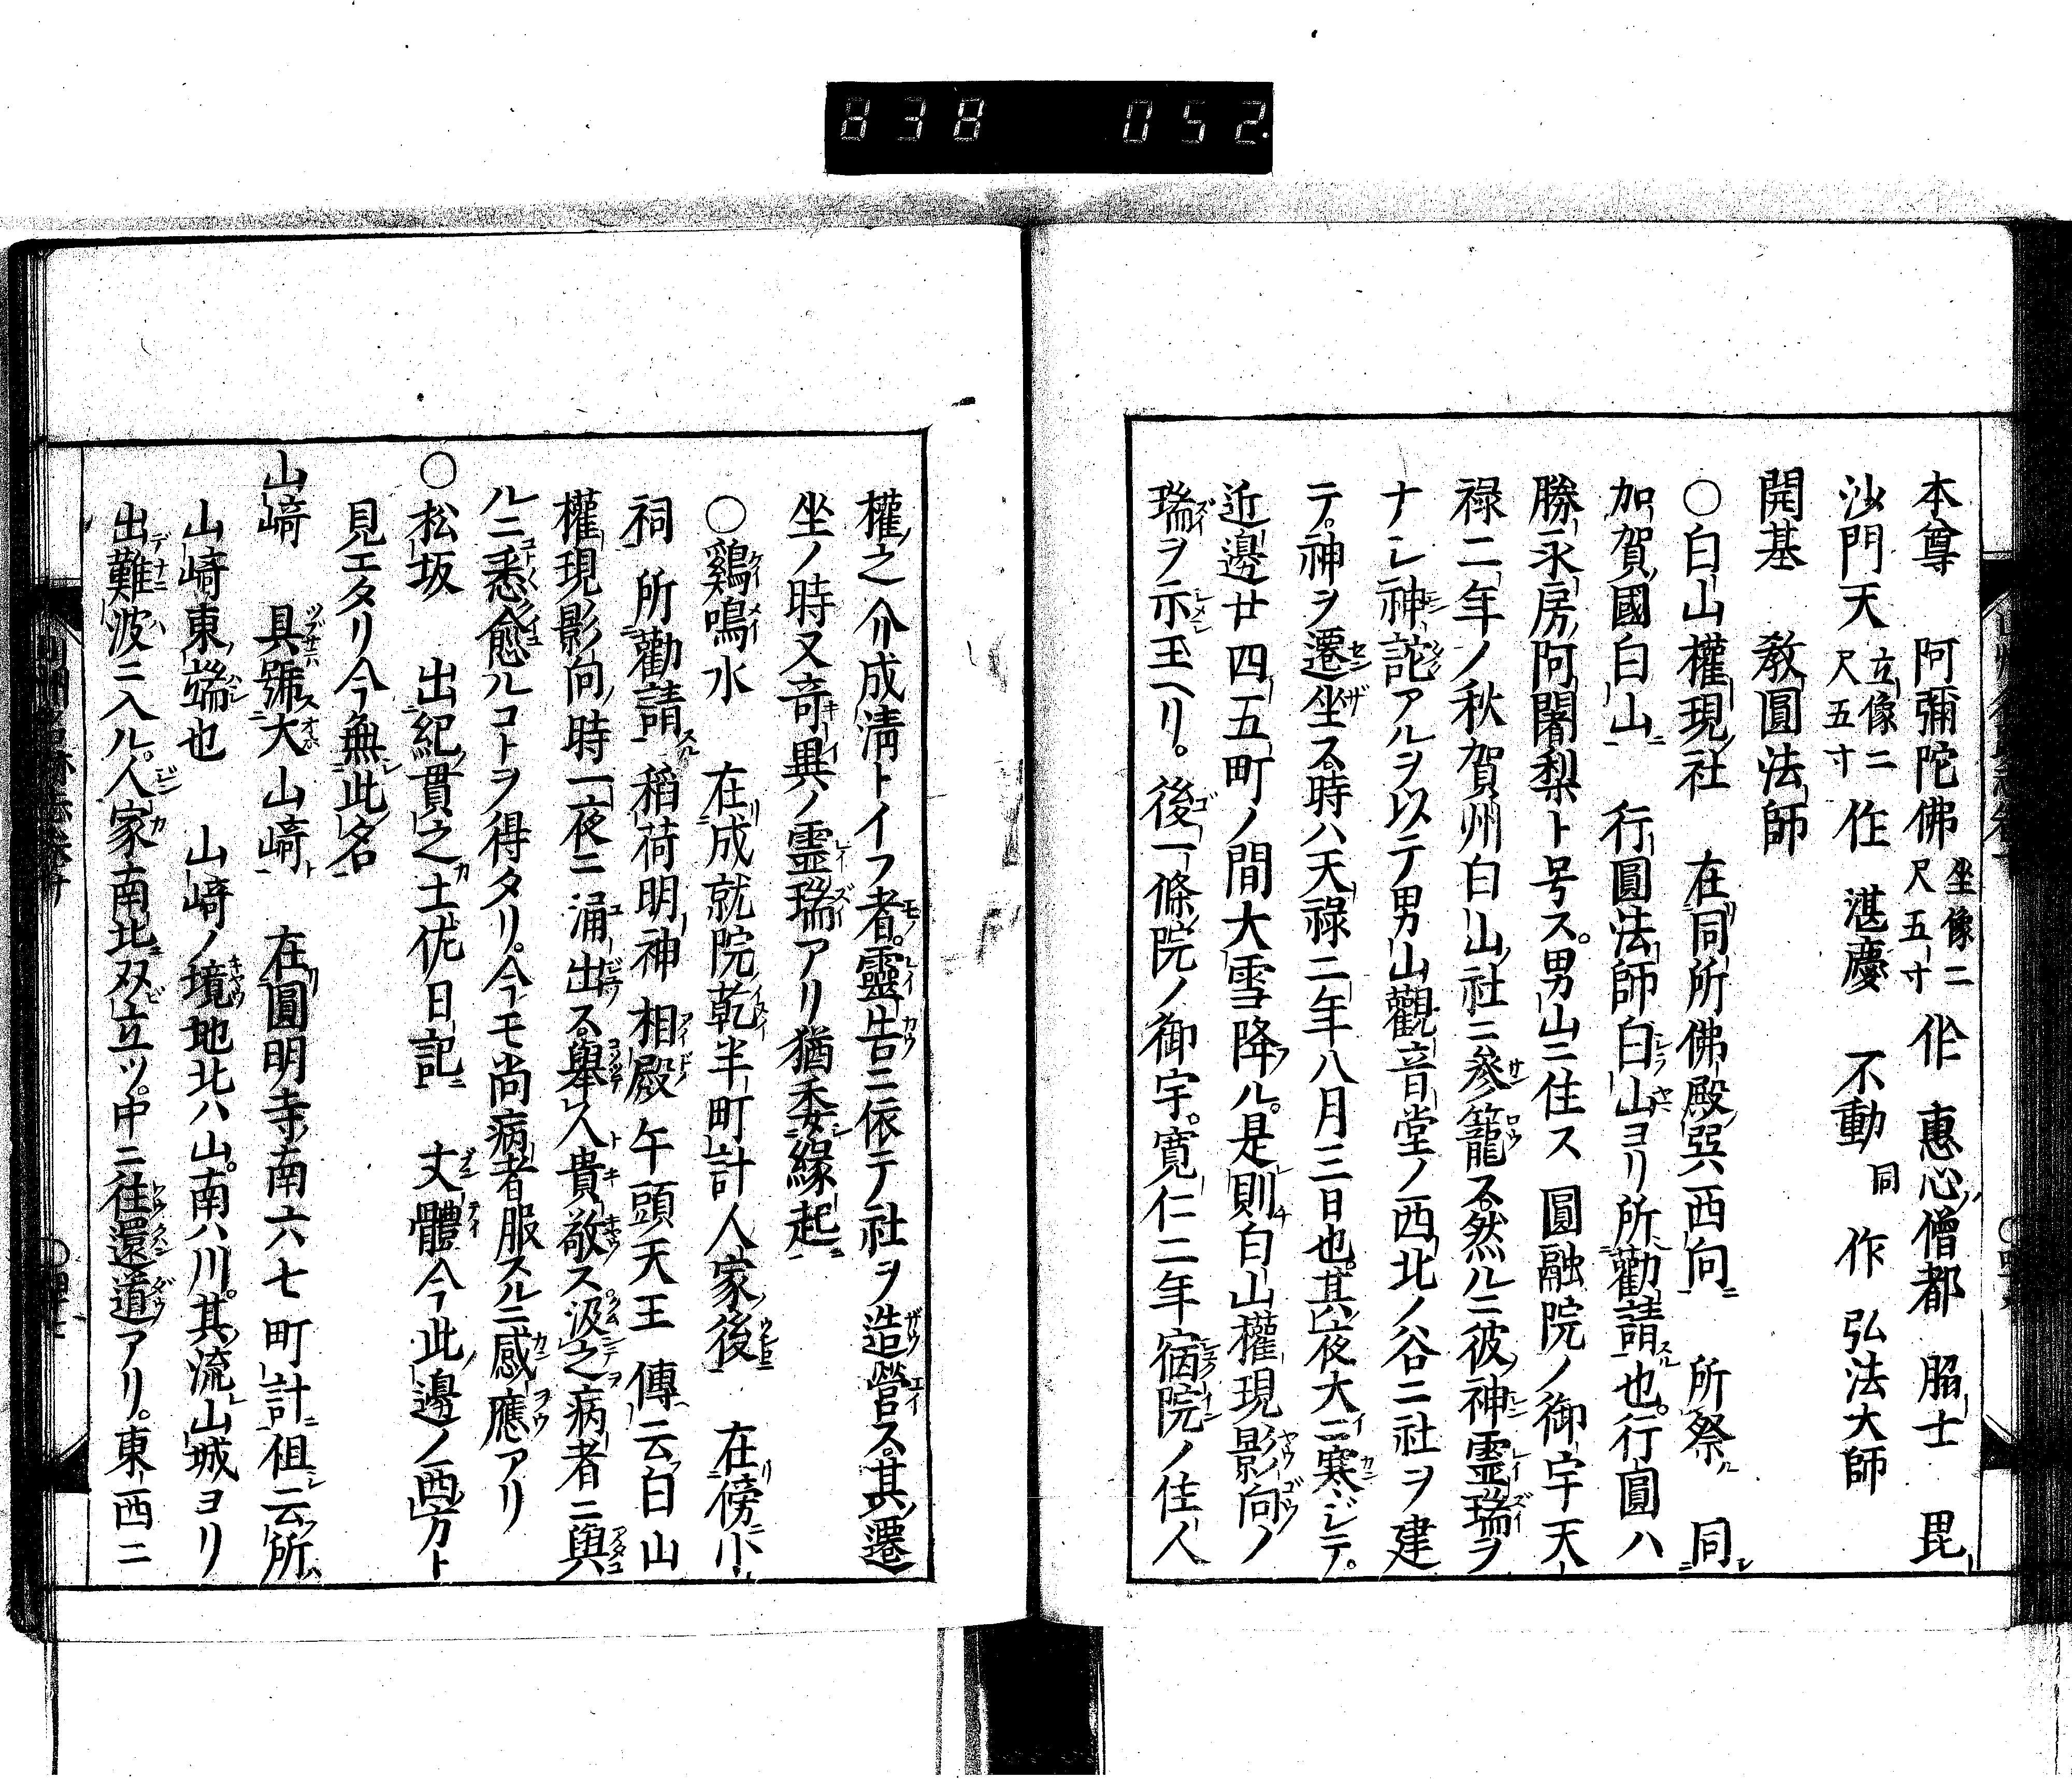 838 052
本尊 阿彌陀佛 坐像二尺五寸 作 惠心僧都 脇士 毘
沙門天 立像二尺五寸 作 湛慶 不動 同 作 弘法大師
開基 教圓法師
○白山權現社 在同所佛殿巽西向 所祭 同
加賀國白山 行圓法師白山ヨリ所勸請也行圓ハ
勝永房阿闍梨ト号ス男山ニ住ス 圓融院ノ御宇天
禄二年ノ秋賀州白山社ニ參籠ス然ルニ彼神霊瑞ヲ
ナシ神詫アルヲ以テ男山觀音堂ノ西北ノ谷ニ社ヲ建
テ神ヲ遷坐ス時ハ天禄二年八月三日也其夜大ニ寒ジテ
近邊廿四五町ノ間大雪降ル是則白山權現影向ノ
瑞ヲ示玉ヘリ。後一條院ノ御宇寛仁二年宿院ノ住人
權之介成清トイフ者靈告ニ依テ社ヲ造營ス其遷
坐ノ時又竒異ノ霊瑞アリ猶委縁起
○鷄鳴水 在成就院乾半町計人家後 在傍小
祠 所勸請 稻荷明神 相殿 午頭天王 傳云白山
權現影向時一夜ニ涌出ス舉人貴敬ス汲之病者ニ與
ルニ悉愈ルコトヲ得タリ。今モ尚病者服スルニ感應アリ
○松坂 出紀貫之土佐日記 丈體今此邊ノ酉方ト
見エタリ今無此名
山﨑 具號大山﨑 在圓明寺南六七町計徂云所
山﨑東端也 山﨑ノ境地北ハ山南ハ川其流山城ヨリ
出難波ニ入ル。人家南北双立ツ中ニ往還道アリ。東西ニ